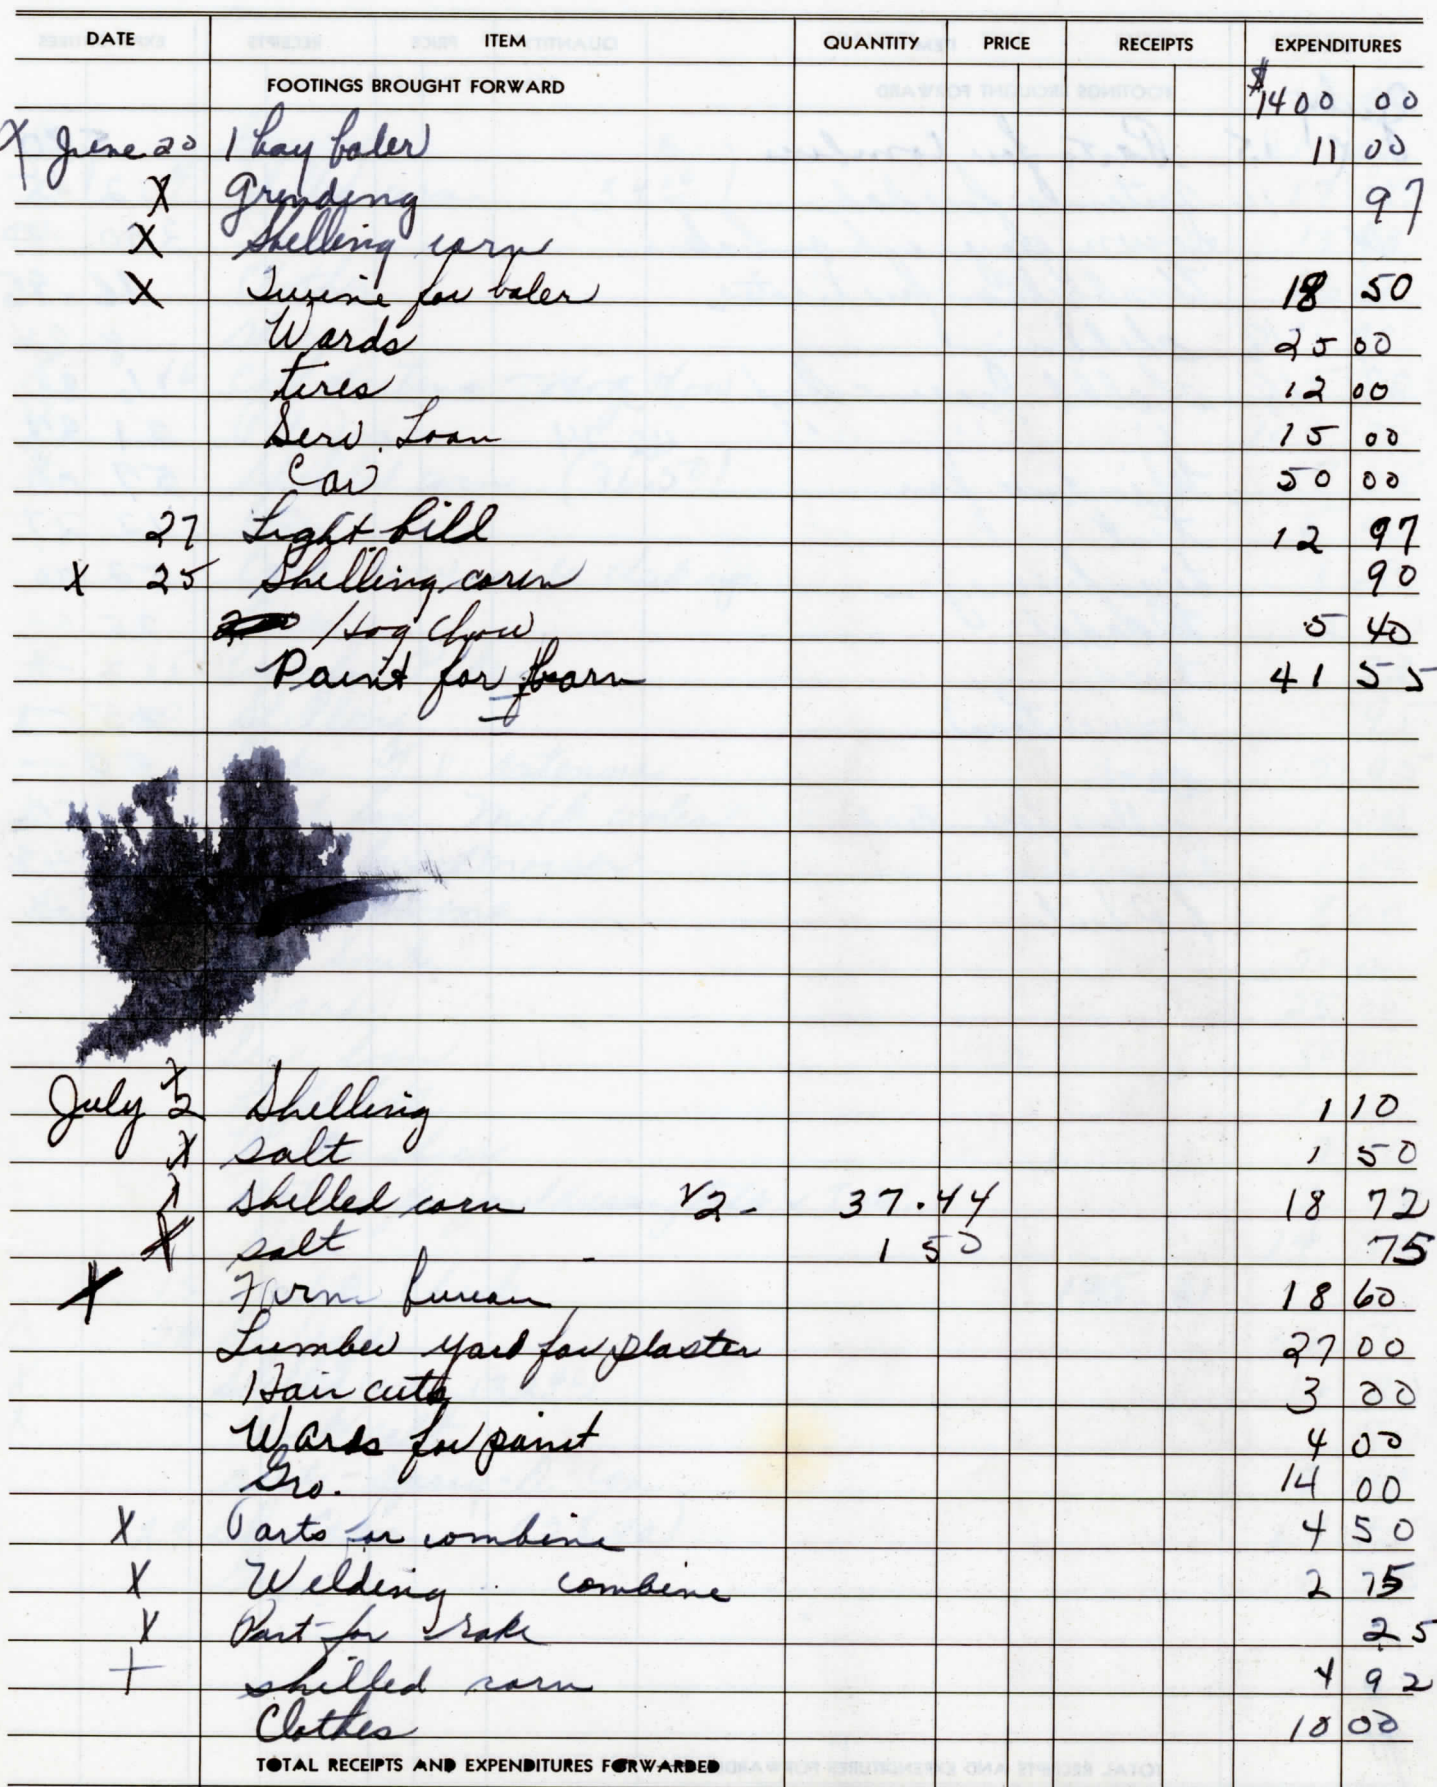 DATE ITEM QUANTITY PRICE RECEIPTS EXPENDITURES
FOOTINGS BROUGHT FORWARD $1400 00
X June 20 1 hay baler 11 00
X Grinding 97
X Shelling corn
X Twine for baler 18 50
Wards 25 00
tires 12 00
Serv. Loan 15 00
Car 50 00
27 Light bill 12 97
X 25 Shelling corn 90
Hog Chow 5 40
Paint for barn 41 55
X
July 2 Shelling 1 10
X salt 1 50
X shelled corn 1/2 - 37.44 18 72
X salt - 1 50 75
X Farm bureau 18 60
Lumber yard for plaster 27 00
Hair cuts 3 00
Wards for paint 4 00
Gro. 14 00
X Parts for combine 4 50
X Welding combine 2 75
X Part for rake 25
+ shelled corn 4 92
Clothes 10 00
TOTAL RECEIPTS AND EXPENDITURES FORWARDED